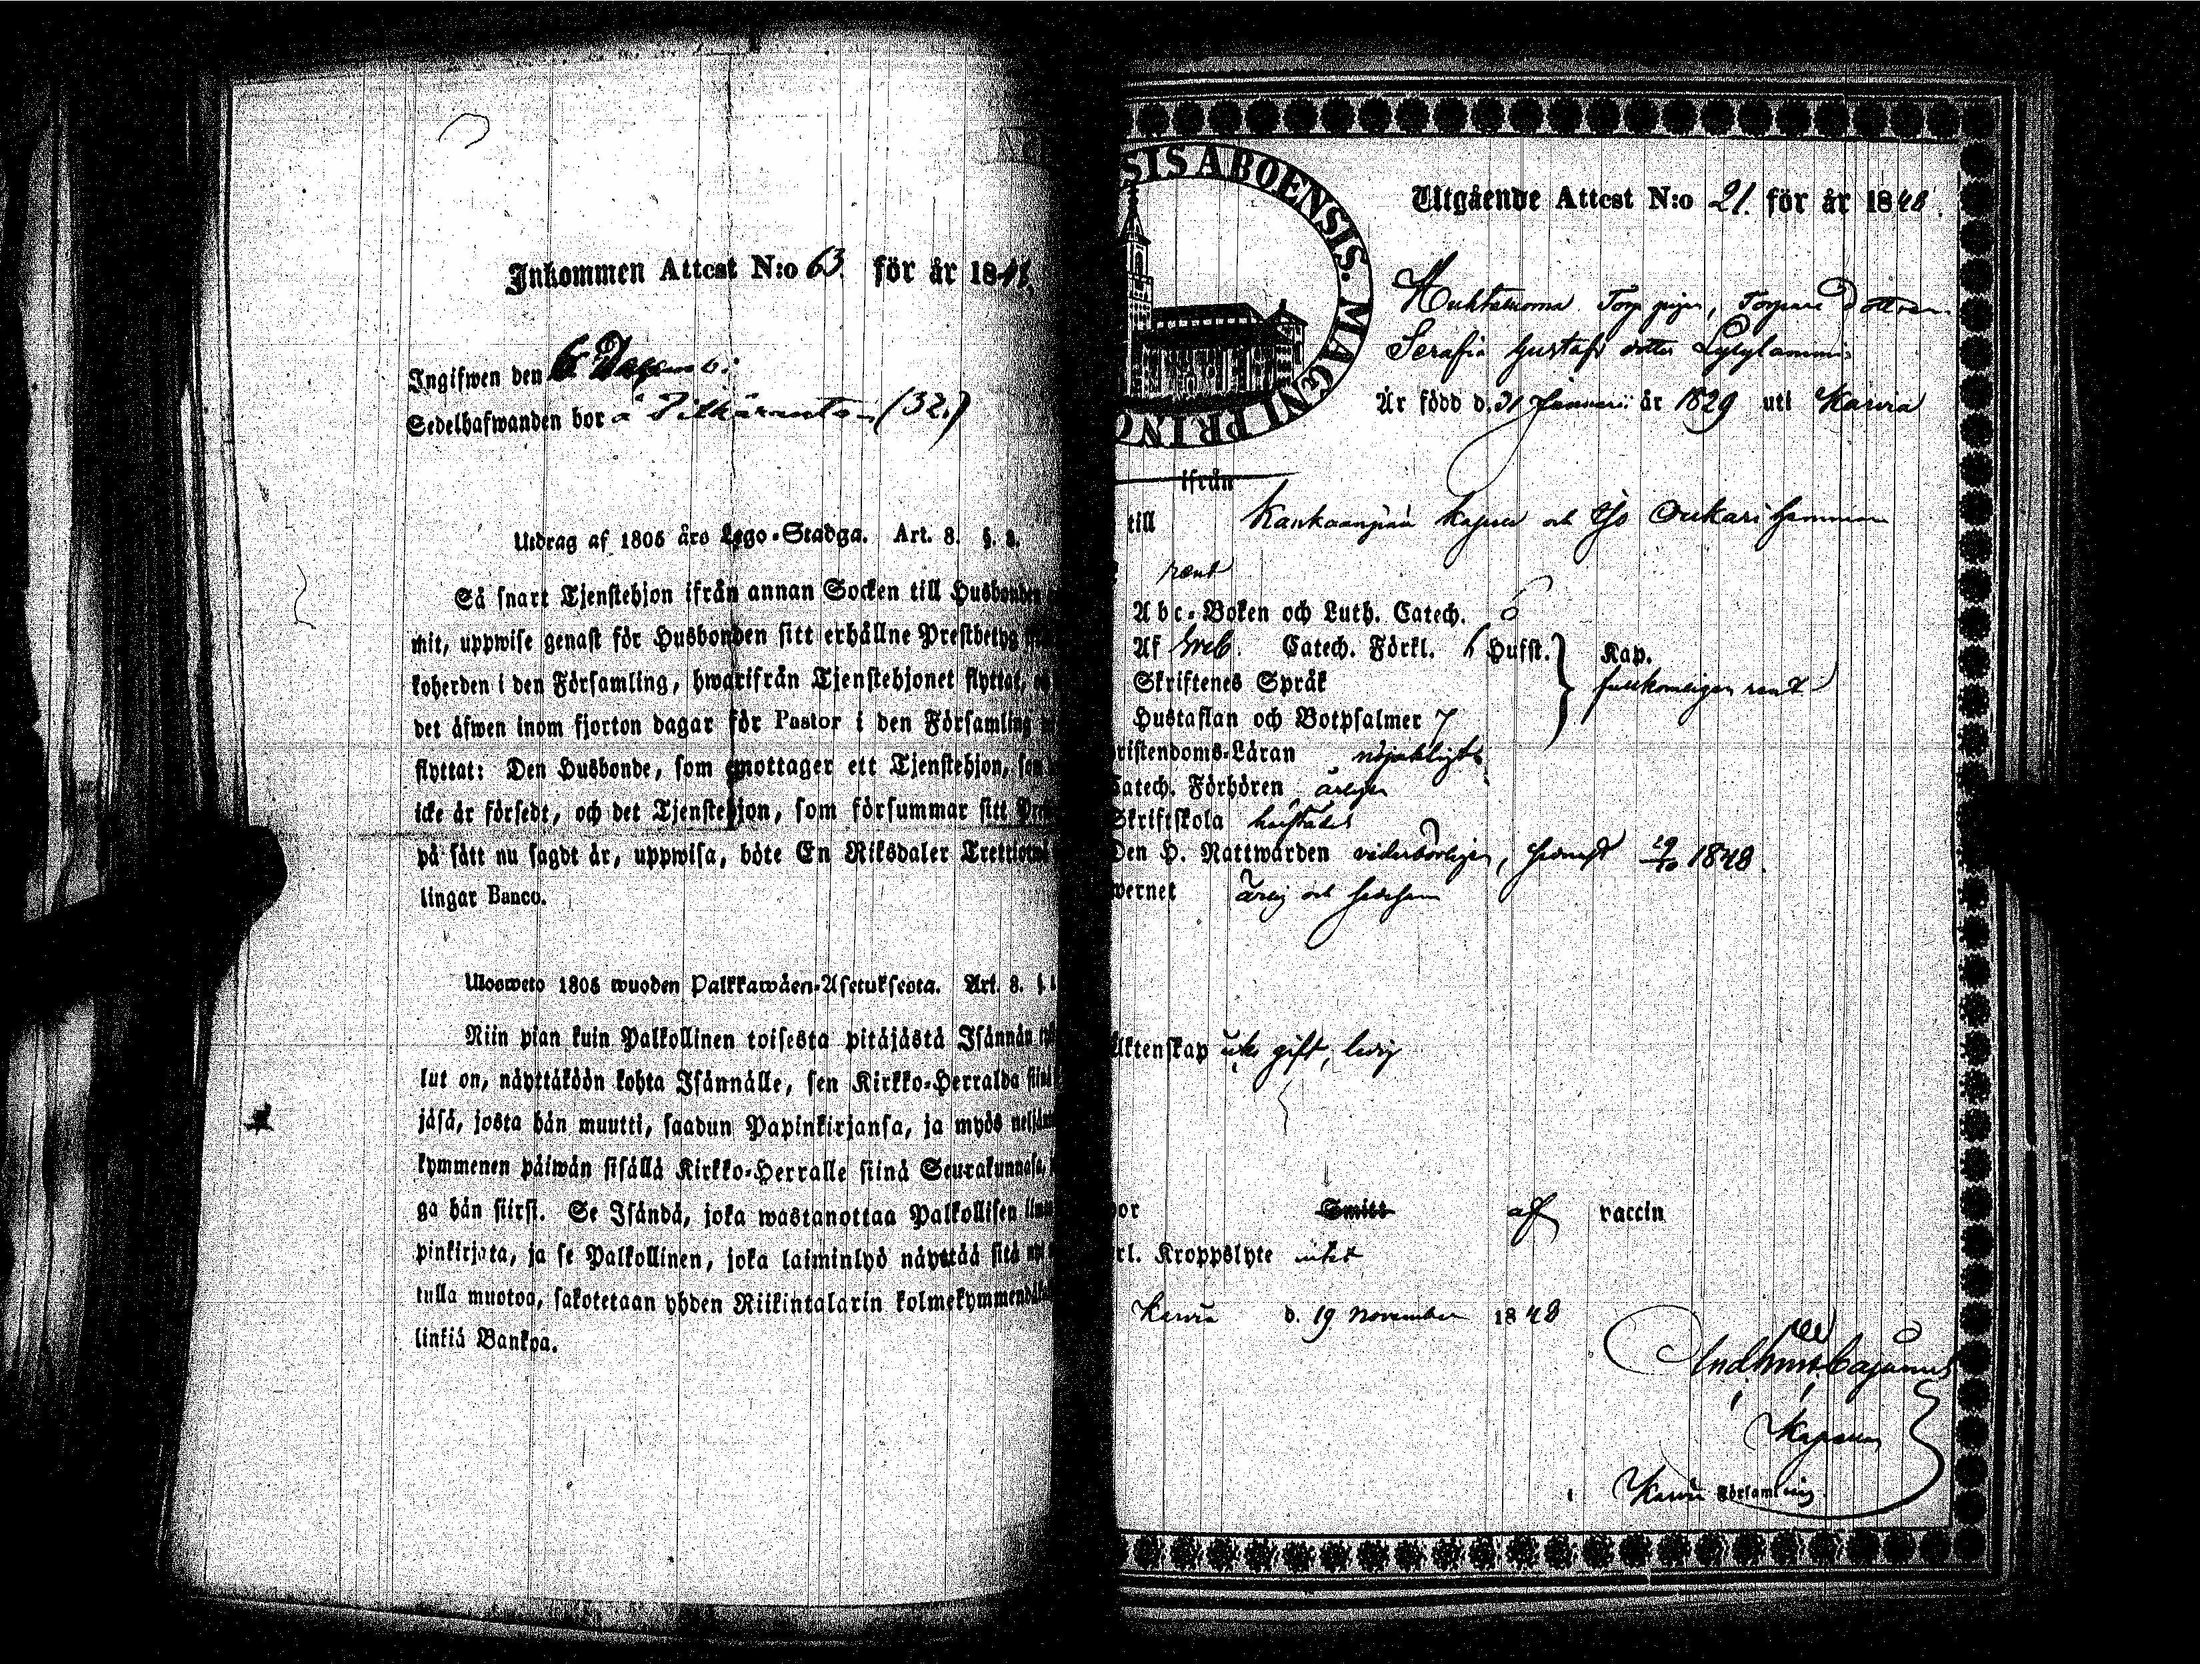 Inkommen Attest N:o 63. för år 1848.
Ingifwen den 6 Decemb:
Sedelhafwanden bor å (32.)
Utdrag af 1805 års Lego-Stadga. Art. 8. §. 8.
Så snart Tjenstehjon ifrån annan Socken till Husbonden
mit, uppwise genast för Husbonden sitt erhållne Prestbetyg
koherden i den Församling, hwarifrån Tjenstehjonet flyttat,
det äfwen inom fjorton dagar för Pastor i den Församling
flyttat: Den Husbonde, som emottager ett Tjenstehjon,
icke är försedt, och det Tjenstehjon, som försummar sitt
på sätt nu sagdt är, uppwisa, böte En Riksdaler
lingar Banco.
Ulosweto 1805 wuoden Palkkawäen-Asetuksesta. Art. 8. §.
Niin pian kuin Palkollinen toisesta pitäjästä Isännän
lut on, näyttäköön kohta Isännälle, sen Kirkko-Herralda
jäsä, josta hän muutti, saadun Papinkirjansa, ja myös
kymmenen päiwän sisällä Kirkko-Herralle siinä Seurakunnasa,
ga hän siirsi. Se Isändä, joka wastanottaa Palkollisen
pinkirjata, ja se Palkollinen, joka laiminlyö näyttää sitä
tulla muotoa, sakotetaan yhden Riikintalarin
linkiä Bankoa.
SIS ABOENSIS. MAGNI PRINC
Utgående Attest N:o 21. för år 1848.
Torp pigan, Torpare Dottren
Serafia Gustafs dotter Lylylammi
Är född d. 31 Januari år 1829 uti Karvia
ifrån
till Kankaanpää Kapell och
rent
Abc-Boken och Luth. Catech. 6
Af Sveb. Catech. Förkl. 6 Hufst. Kap.
Skriftenes Språk fullkomligen rent
Hustaflan och Botpsalmer 7
ristendoms-Läran nöjaktigt
Catech. Förhören årligen
Skriftskola
Den H. Nattwarden vederbörligen, senast 29/10 1848.
wernet ärlig och
Äktenskap icke gift, ledig
por Smitt af vaccin
rl. Kroppslyte intet
Karvia d. 19 November 1848
Cajanus
Kapellan
i Karvia Församling